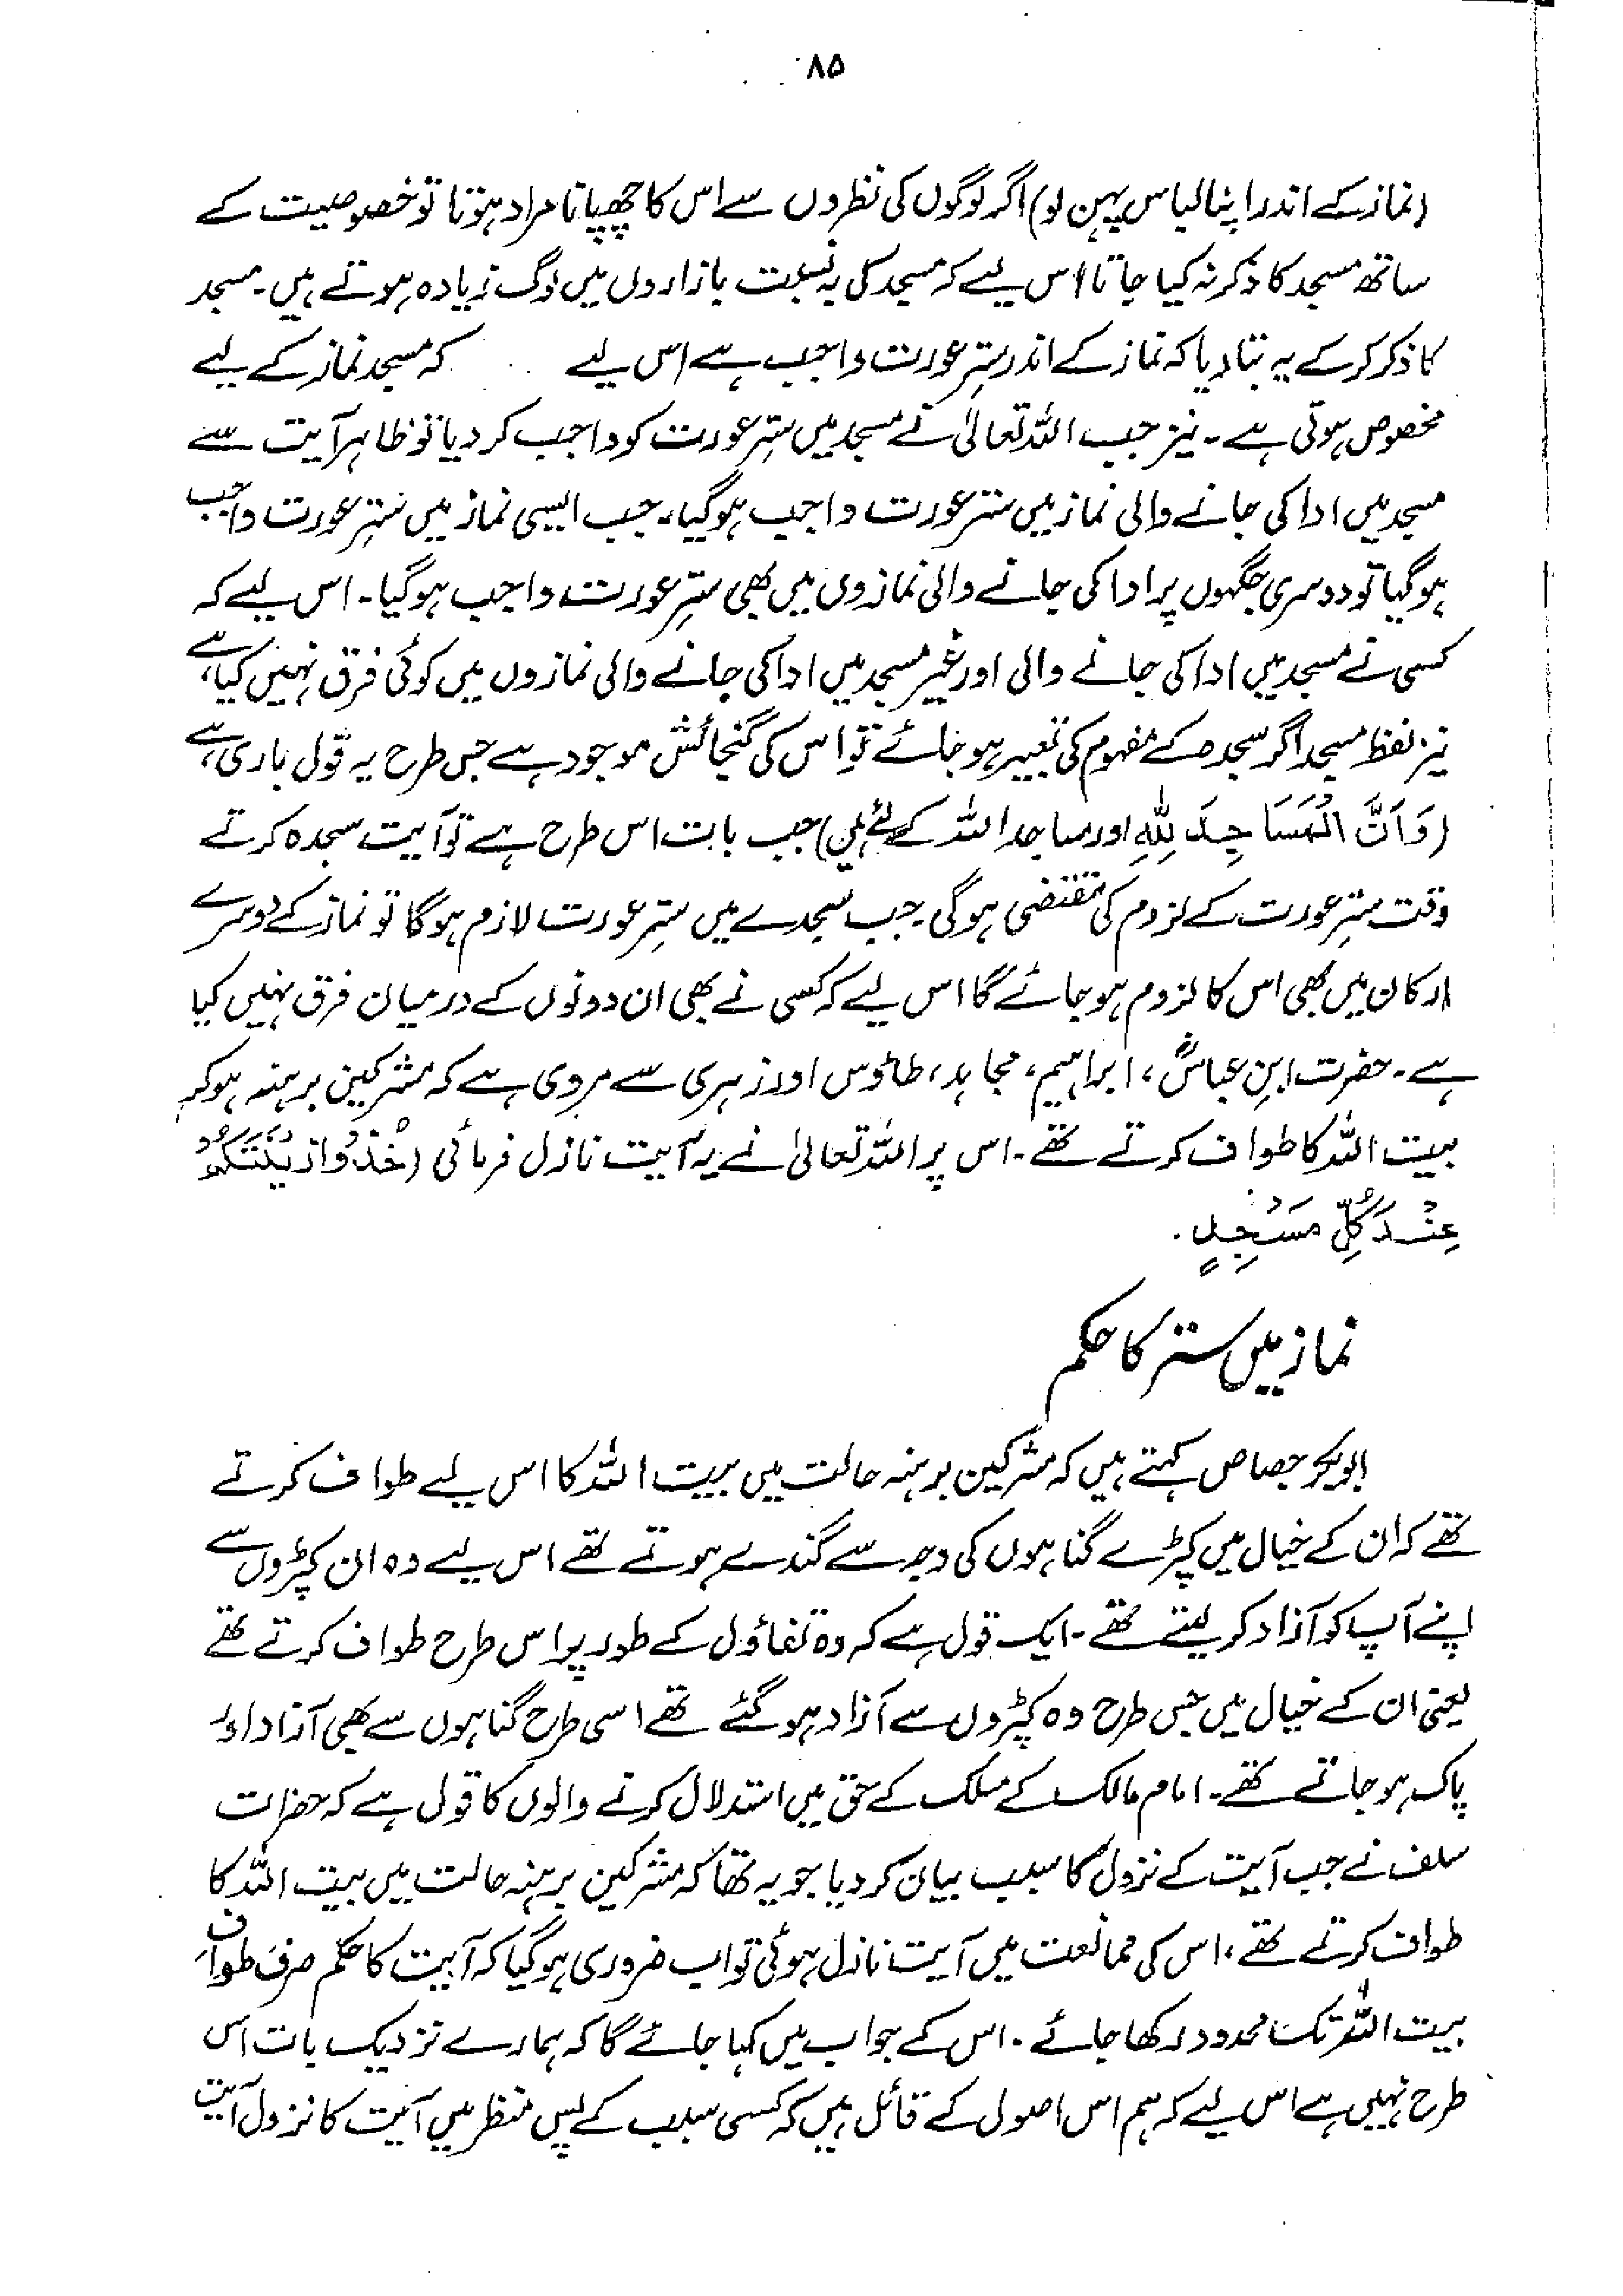 ۸۵
(نماز کے اندر اپنا لباس پہن لو) اگر لوگوں کی نظروں سے اس کا چھپانا مراد ہوتا تو خصوصیت کے
ساتھ مسجد کا ذکر نہ کیا جاتا اس لیے کہ مسجد کی بہ نسبت بازاروں میں لوگ زیادہ ہوتے ہیں۔ مسجد
کا ذکر کر کے یہ بتا دیا کہ نماز کے اندر سترِ عورت واجب ہے اس لیے کہ مسجد نماز کے لیے
مخصوص ہوتی ہے۔ نیز جب اللہ تعالیٰ نے مسجد میں سترِ عورت کو واجب کر دیا تو ظاہر آیت سے
مسجد میں ادا کی جانے والی نماز میں ستر عورت واجب ہو گیا، جب ایسی نماز میں سترِ عورت واجب
ہو گیا تو دوسری جگہوں پر ادا کی جانے والی نمازوں میں بھی سترِ عورت واجب ہو گیا۔ اس لیے کہ
کسی نے مسجد میں ادا کی جانے والی اور غیر مسجد میں ادا کی جانے والی نمازوں میں کوئی فرق نہیں کیا ہے،
نیز لفظ مسجد اگر سجدہ کے مفہوم کی تعبیر ہو جائے تو اس کی گنجائش موجود ہے جس طرح یہ قول باری ہے،
(وَاَنَّ الْمَسَاجِدَ لِلّٰهِ اور مساجد اللہ کے لئے ہیں) جب بات اس طرح ہے تو آیت سجدہ کرتے
وقت سترِ عورت کے لزوم کی مقتضی ہو گی۔ جب سجدے میں سترِ عورت لازم ہو گا تو نماز کے دوسرے
ارکان میں بھی اس کا لزوم ہو جائے گا اس لیے کہ کسی نے بھی ان دونوں کے درمیان فرق نہیں کیا
ہے۔ حضرت ابنِ عباسؓ، ابراہیم، مجاہد، طاؤس اور زہری سے مروی ہے کہ مشرکین برہنہ ہو کر
بیت اللہ کا طواف کرتے تھے۔ اس پر اللہ تعالیٰ نے یہ آیت نازل فرمائی (خُذُوْا زِيْنَتَكُمْ
عِنْدَ كُلِّ مَسْجِدٍ۔
نماز میں ستر کا حکم
ابوبکر جصاص کہتے ہیں کہ مشرکین برہنہ حالت میں بیت اللہ کا اس لیے طواف کرتے
تھے کہ ان کے خیال میں کپڑے گناہوں کی وجہ سے گندے ہوتے تھے اس لیے وہ ان کپڑوں سے
اپنے آپ کو آزاد کر لیتے تھے۔ ایک قول ہے کہ وہ تفاؤل کے طور پر اس طرح طواف کرتے تھے
یعنی ان کے خیال میں جس طرح وہ کپڑوں سے آزاد ہو گئے تھے اسی طرح گناہوں سے بھی آزاد اور
پاک ہو جاتے تھے۔ امام مالک کے مسلک کے حق میں استدلال کرنے والوں کا قول ہے کہ حضرات
سلف نے جب آیت کے نزول کا سبب بیان کر دیا جو یہ تھا کہ مشرکین برہنہ حالت میں بیت اللہ کا
طواف کرتے تھے، اس کی ممانعت میں آیت نازل ہوئی تو اب ضروری ہو گیا کہ آیت کا حکم صرف طوافِ
بیت اللہ تک محدود رکھا جائے۔ اس کے جواب میں کہا جائے گا کہ ہمارے نزدیک بات اس
طرح نہیں ہے اس لیے کہ ہم اس اصول کے قائل ہیں کہ کسی سبب کے پس منظر میں آیت کا نزول آیت